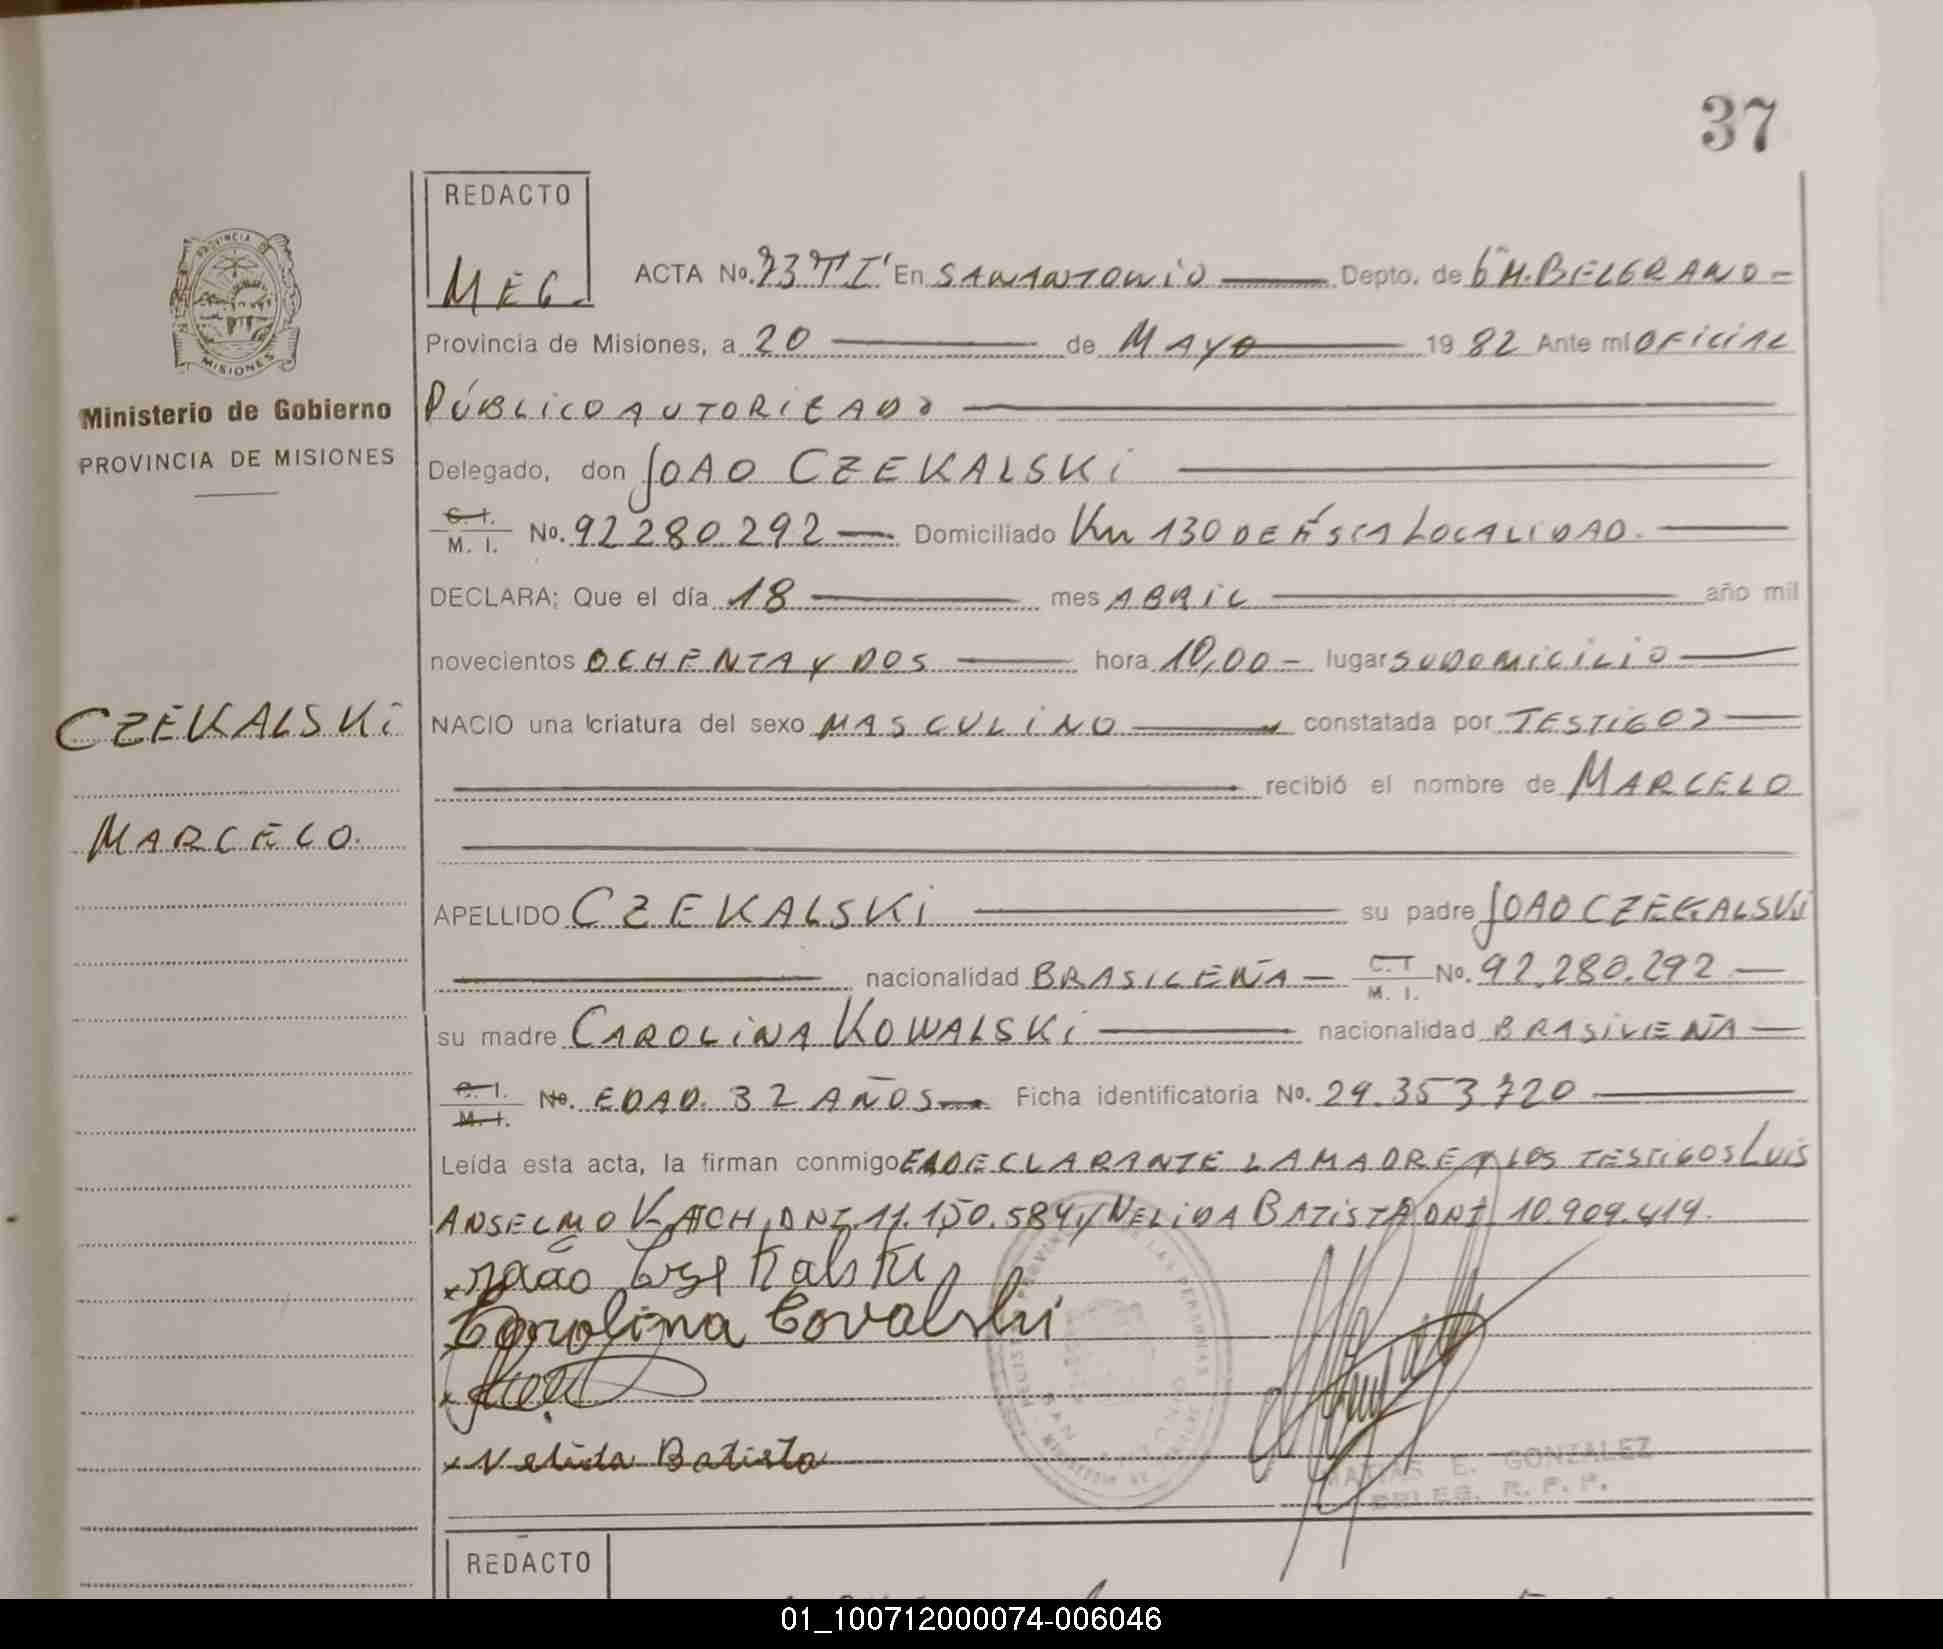 37
REDACTO
MEG.
ACTA No. 73 "T I" En SAN ANTONIO Depto. de Gral. M. BELGRANO
PROVINCIA DE
MISIONES
Provincia de Misiones, a 20 de MAYO 1982 Ante mí OFICIAL
Ministerio de Gobierno
PROVINCIA DE MISIONES
PÚBLICO AUTORIZADO
Delegado, don JOAO CZEKALSKI
C. I. M. I. No. 92280292 Domiciliado Km 130 DE ÉSTA LOCALIDAD.
DECLARA; Que el día 18 mes ABRIL año mil
novecientos OCHENTA Y DOS hora 10,00 lugar SU DOMICILIO
CZEKALSKI
NACIO una criatura del sexo MASCULINO constatada por TESTIGOS
recibió el nombre de MARCELO
MARCELO.
APELLIDO CZEKALSKI su padre JOAO CZEKALSKI
nacionalidad BRASILEÑA C. I M. I. No. 92.280.292
su madre CAROLINA KOWALSKI nacionalidad BRASILEÑA
C. I. M. I. No. EDAD. 32 AÑOS Ficha identificatoria No. 29.353720
Leída esta acta, la firman conmigo EL DECLARANTE LA MADRE Y LOS TESTIGOS LUIS
ANSELMO KATCH, DNI. 11.150.584 y NELIDA BATISTA DNI 10.909.419.
x João Czekalski
Carolina Covalski
x Nelida Batista
MATIAS E. GONZALEZ
DELEG. R. P. P.
REDACTO
01_100712000074-006046